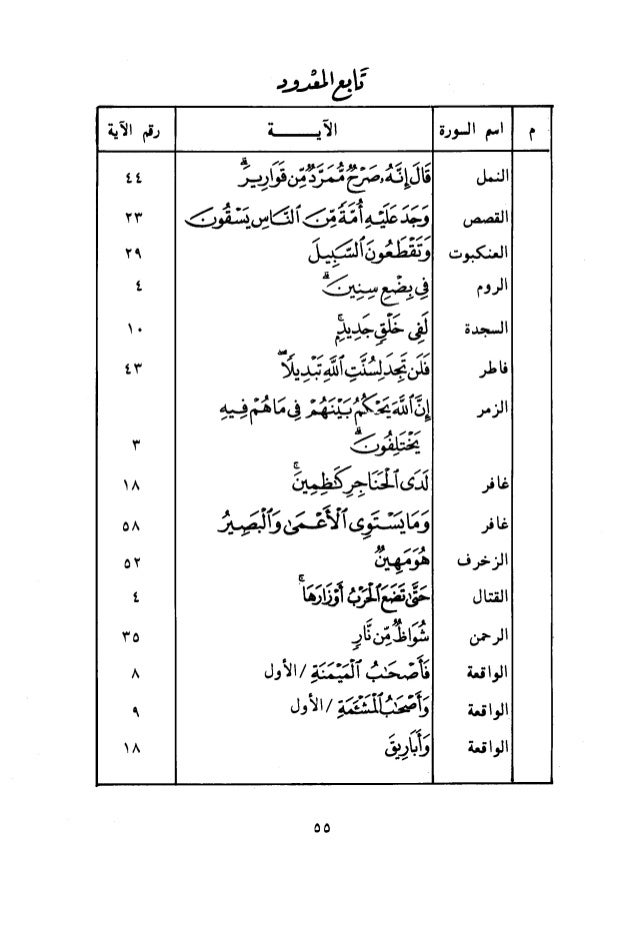 تابع المعدود
م اسم السورة الآيـــــة رقم الآية
النمل قَالَ إِنَّهُۥ صَرۡحٌ مُّمَرَّدٌ مِّن قَوَارِيرَۗ ٤٤
القصص وَجَدَ عَلَيۡهِ أُمَّةً مِّنَ ٱلنَّاسِ يَسۡقُونَ ٢٣
العنكبوت وَتَقۡطَعُونَ ٱلسَّبِيلَ ٢٩
الروم فِي بِضۡعِ سِنِينَۗ ٤
السجدة لَفِي خَلۡقٍ جَدِيدٍۚ ١٠
فاطر فَلَن تَجِدَ لِسُنَّتِ ٱللَّهِ تَبۡدِيلًاۖ ٤٣
الزمر إِنَّ ٱللَّهَ يَحۡكُمُ بَيۡنَهُمۡ فِي مَا هُمۡ فِيهِ
يَخۡتَلِفُونَۗ ٣
غافر لَدَى ٱلۡحَنَاجِرِ كَٰظِمِينَۚ ١٨
غافر وَمَا يَسۡتَوِي ٱلۡأَعۡمَىٰ وَٱلۡبَصِيرُ ٥٨
الزخرف هُوَ مَهِينٌ ٥٢
القتال حَتَّىٰ تَضَعَ ٱلۡحَرۡبُ أَوۡزَارَهَاۚ ٤
الرحمن شُوَاظٌ مِّن نَّارٍ ٣٥
الواقعة فَأَصۡحَٰبُ ٱلۡمَيۡمَنَةِ / الأول ٨
الواقعة وَأَصۡحَٰبُ ٱلۡمَشۡـَٔمَةِ / الأول ٩
الواقعة وَأَبَارِيقَ ١٨
٥٥